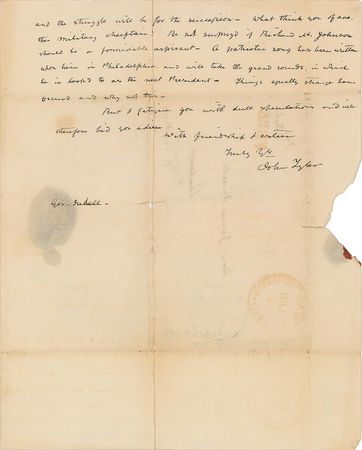 and the struggle will be for the succession - What think you of ano.
ther military cheiftain? Be not surprized if Richard M. Johnson
should be a formidable aspirant - A patriotic song has been written
upon him in Philadelphia and will take the grand rounds, in which
he is hooted to as the next President - Things equally strange have
occurred and why not this -
But I fatigue you with dull speculations and will
therefore bid you adieu
With friendship & esteem
Truly Yrs
John Tyler
Gov. Iredell -